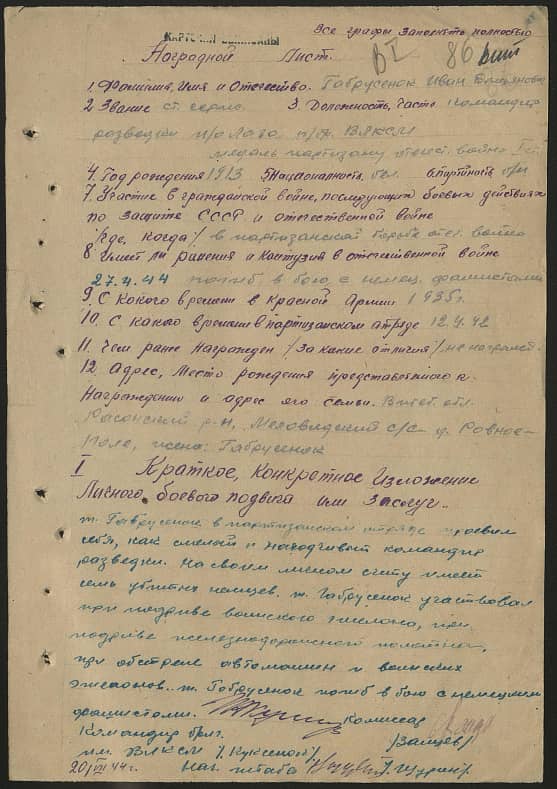 Все графы заполнять полностью
КАРТОЧКИ ВЫПИСАНЫ
Наградной Лист.
86
1. Фамилия, Имя и Отечество. Габрусенок Иван
2 Звание ст. серж. 3. Должность, часть командир
разведки п/о Лазо, п/бр. ВЛКСМ
медаль партизану отечест. войны I ст.
4. Год рождения 1913 5 Национальность. бел. 6. партийность б/п
7. Участие в гражданской войне, последующих боевых действиях
по защите СССР и отечественной войне
/где, когда/ в партизанской борьбе отеч. войны
8. Имеет ли ранения и контузия в отечественной войне
27.4.44 погиб в бою с немец. фашистами
9. С какого времени в Красной Армии 1935г.
10. С какого времени в партизанском отряде 12.4.42
11. Чем ранее награжден /за какие отличия/ не награжд.
12. Адрес, место рождения представленного к
награждению и адрес его семьи. Витеб. обл.
Расонский р-н, с/с д. Ровное-
Поле, жена: Габрусенок
I Краткое, конкретное изложение
личного боевого подвига или заслуг..
т. Габрусенок в партизанском отряде проявил
себя, как смелый и находчивый командир
разведки. На своим личном счету имеет
семь убитых немцев. т. Габрусенок участвовал
при подрыве воинского эшелона, при
подрыве железнодорожного полотна,
при обстреле автомашин и воинских
эшелонов. т. Габрусенок погиб в бою с немецкими
фашистами. Комиссар
Командир бриг. /Зайцев/
им. ВЛКСМ
20/VII 44г. Нач. штаба